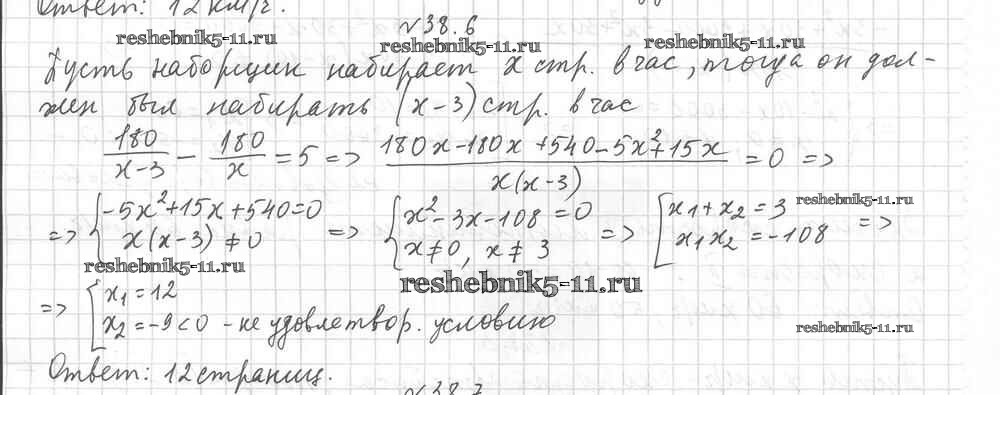 Ответ: 12 км/ч.
№38.6
reshebnik5-11.ru reshebnik5-11.ru reshebnik5-11.ru
Пусть наборщик набирает x стр. в час, тогда он дол-
жен был набирать (x-3) стр. в час
180/(x-3) - 180/x = 5 => (180x-180x+540-5x²+15x)/(x(x-3)) = 0 =>
=> { -5x²+15x+540=0 ; x(x-3)≠0 => { x²-3x-108=0 ; x≠0, x≠3 => [ x₁+x₂=3 ; x₁x₂=-108 =>
reshebnik5-11.ru
reshebnik5-11.ru
reshebnik5-11.ru
=> [ x₁=12
x₂=-9<0 - не удовлетвор. условию
reshebnik5-11.ru
Ответ: 12 страниц.
№38.7